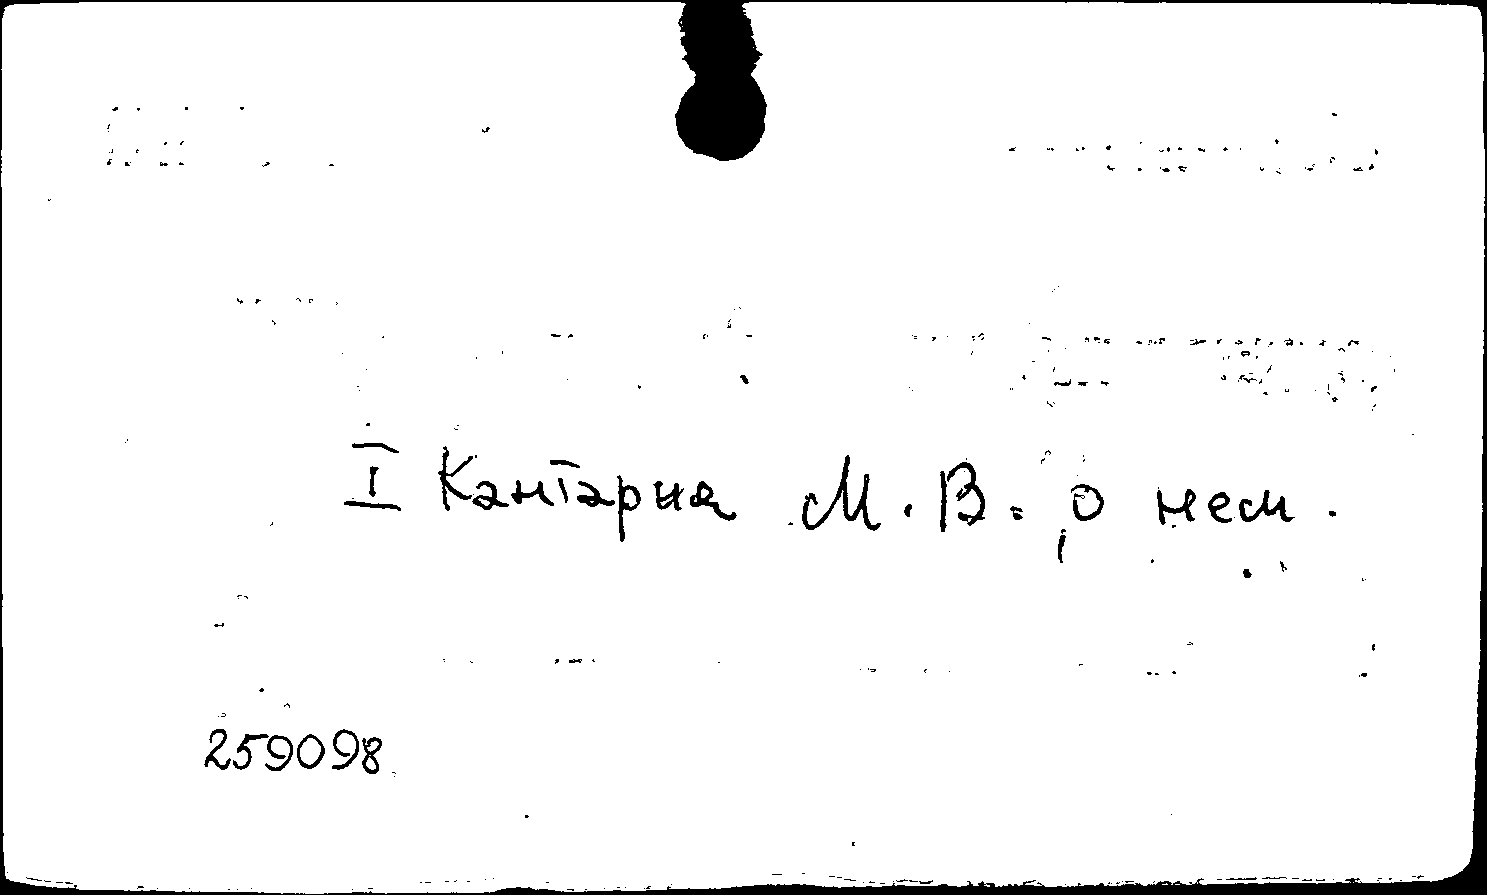 I Кантария М. В. о нем.
259098